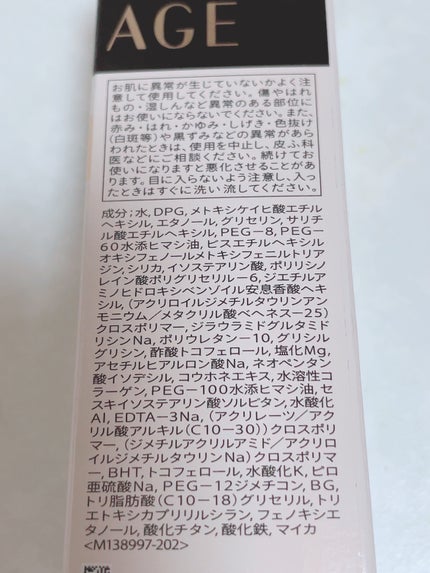 AGE
お肌に異常が生じていないかよく注
意して使用してください。傷やはれ
もの・湿しんなど異常のある部位に
はお使いにならないでください。また、
赤み・はれ・かゆみ・しげき・色抜け
(白斑等)や黒ずみなどの異常があら
われたときは、使用を中止し、皮ふ科
医などにご相談ください。続けてお
使いになりますと悪化させることがあ
ります。目に入らないよう注意し、入っ
たときはすぐに洗い流してください。
成分:水, DPG, メトキシケイヒ酸エチル
ヘキシル, エタノール, グリセリン, サリチ
ル酸エチルヘキシル, PEG-8, PEG-
60水添ヒマシ油, ビスエチルヘキシル
オキシフェノールメトキシフェニルトリア
ジン, シリカ, イソステアリン酸, ポリリシノ
レイン酸ポリグリセリル-6, ジエチルア
ミノヒドロキシベンゾイル安息香酸ヘキ
シル, (アクリロイルジメチルタウリンアン
モニウム/メタクリル酸ベヘネス-25)
クロスポリマー, ジラウラミドグルタミド
リシンNa, ポリウレタン-10, グリシル
グリシン, 酢酸トコフェロール, 塩化Mg,
アセチルヒアルロン酸Na, ネオペンタン
酸イソデシル, コウホネエキス, 水溶性コ
ラーゲン, PEG-100水添ヒマシ油, セ
スキイソステアリン酸ソルビタン, 水酸化
Al, EDTA-3Na, (アクリレーツ/アクリ
ル酸アルキル(C10-30))クロスポリ
マー, (ジメチルアクリルアミド/アクリロ
イルジメチルタウリンNa)クロスポリマ
ー, BHT, トコフェロール, 水酸化K, ピロ
亜硫酸Na, PEG-12ジメチコン, BG,
トリ脂肪酸(C10-18)グリセリル, トリ
エトキシカプリリルシラン, フェノキシエ
タノール, 酸化チタン, 酸化鉄, マイカ
<M138997-202>